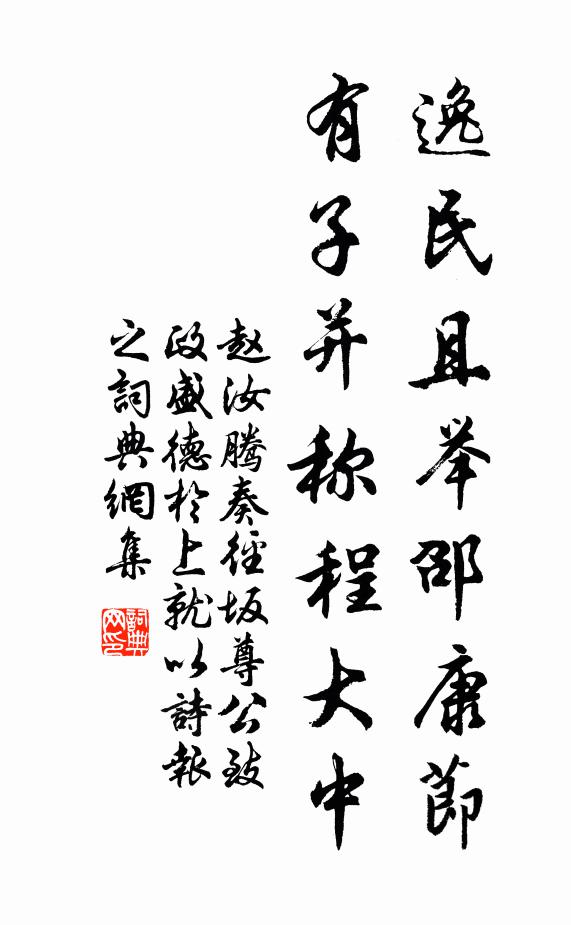 逸民且举邵康節
有子并称程大中
赵汝腾奏径坂尊公致
政盛德於上就以詩報
之詞典網集
詞典网印